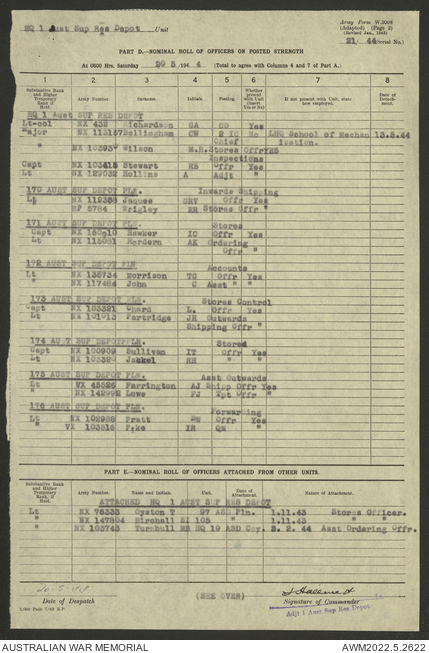 HQ 1 Aust Sup Res Depot Unit
Army Form W.3008
(Adapted) (Page 2)
(Revised Jan., 1943)
21 / 44 (Serial No.)
PART D.—NOMINAL ROLL OF OFFICERS ON POSTED STRENGTH
At 0600 Hrs. Saturday 20 5 194 4 (Total to agree with Columns 4 and 7 of Part A.)
1 2 3 4 5 6 7 8
Substantive Rank and Higher Temporary Rank if Held. Army Number. Surname. Initials. Posting. Whether present with Unit (Insert Yes or No) If not present with Unit, state how employed. Date of Detachment.
HQ 1 Aust SUP RES DEPOT
Lt-col NX 432 Richardson GA CO Yes
Major NX 115157 Bellingham CW 2 IC No LHQ School of Mechan 13.5.44
Chief ization.
" NX 10393 Wilson M.R. Stores Offr YES
Inspections
Capt NX 103415 Stewart RS Offr Yes
Lt NX 129032 Rollins A Adjt "
170 AUST SUP DEPOT PLN. Inwards Shipping
Lt NX 112388 Jaques SRV Offr Yes
" NP 5784 Wrigley RR Stores Offr "
171 AUST SUP DEPOT PLN. Stores
Capt Hawker IC Offr Yes
Lt NX 115081 Hordern AX Ordering
Offr "
172 AUST SUP DEPOT PLN Accounts
Lt NX 135734 Morrison TG Offr Yes
" NX 117484 John C Asst " "
173 AUST SUP DEPOT PLN. Stores Control
Capt NX 103321 Chard L. Offr Yes
Lt NX 101013 Partridge JR Outwards
Shipping Offr "
174 AUST SUP DEPOT PLN. Stored
Capt NX 100909 Sullivan IT Offr Yes
Lt Jackel RH " "
175 AUST SUP DEPOT PLN. Asst Outwards
Lt VX 45526 Farrington AJ Shipp Offr Yes
" NX 142992 Lowe FJ Tpt Offr "
176 AUST SUP DEPOT PLN. Forwarding
Lt NX 102988 Pratt Offr Yes
" VX 103816 Pike IR QM "
PART E.—NOMINAL ROLL OF OFFICERS ATTACHED FROM OTHER UNITS.
Substantive Rank and Higher Temporary Rank if Held. Army Number. Name and Initials. Unit. Date of Attachment. Nature of Attachment.
ATTACHED HQ 1 AUST SUP RES DEPOT
Lt NX 76333 Oyston T 97 ASD Pln. 1.11.43 Stores Officer.
" NX 147804 Birchall SI 105 " 1.11.43 " "
" NX 103743 Turnbull MB HQ 19 ASD Coy. 3.2.44 Asst Ordering Offr.
Date of Despatch
(SEE OVER)
Signature of Commander
Adjt 1 Aust Sup Res Depot
AUSTRALIAN WAR MEMORIAL AWM2022.5.2622